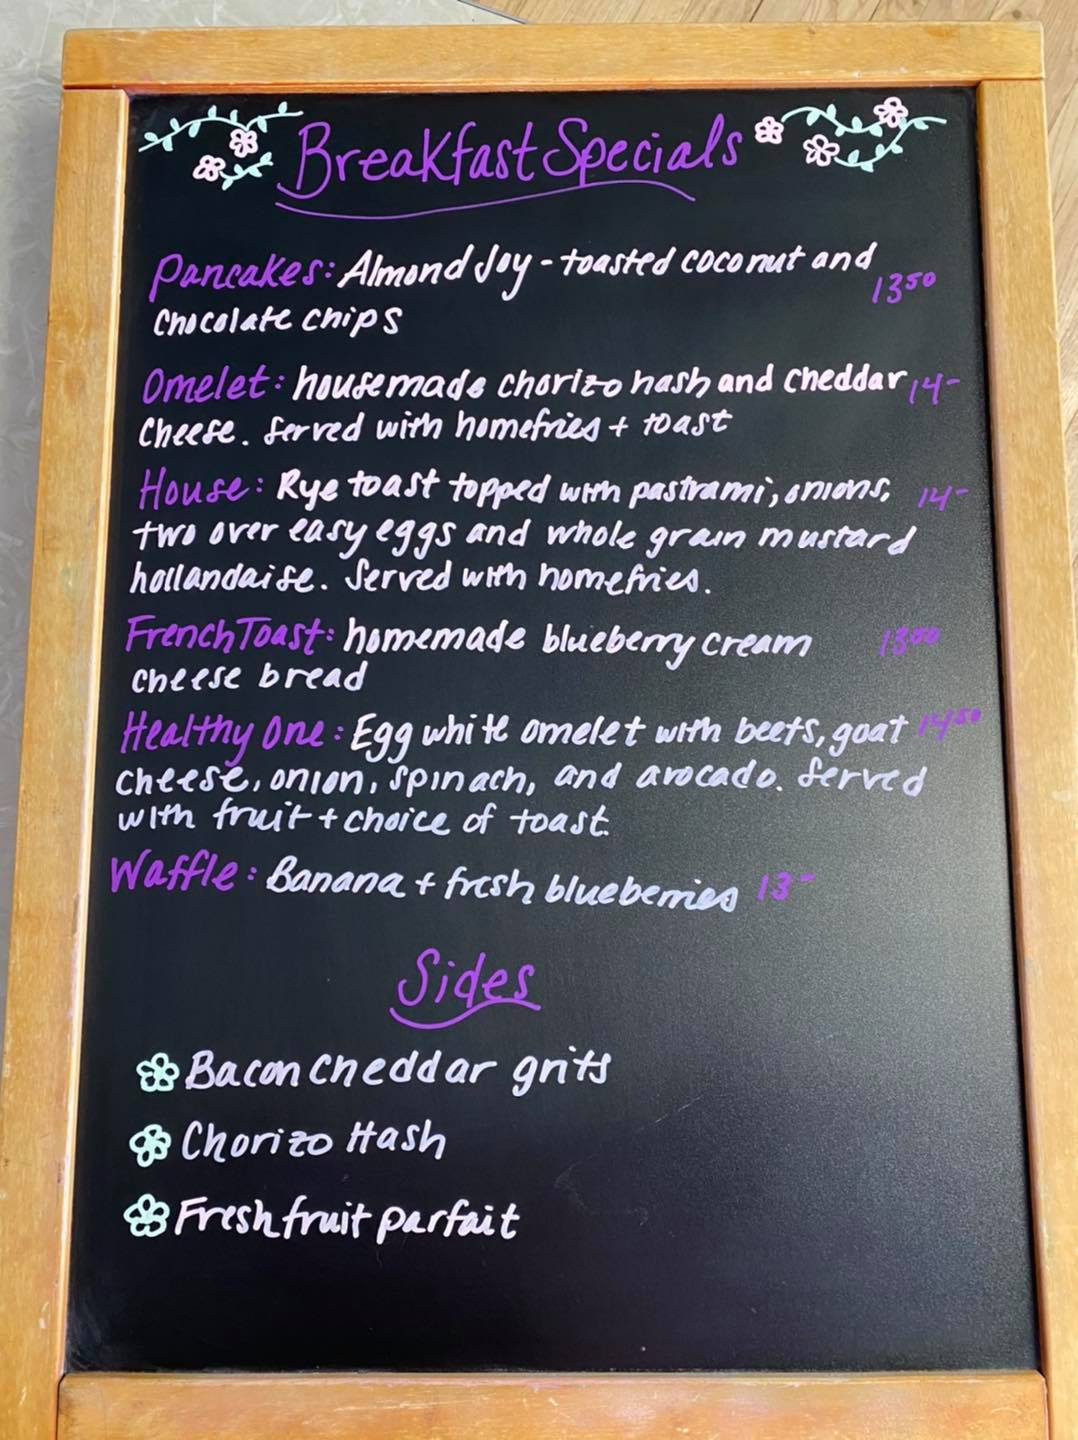 Breakfast Specials
Pancakes: Almond Joy - toasted coconut and 13 50
chocolate chips
Omelet: housemade chorizo hash and cheddar 14-
cheese. Served with homefries + toast
House: Rye toast topped with pastrami, onions, 14-
two over easy eggs and whole grain mustard
hollandaise. Served with homefries.
French Toast: homemade blueberry cream
cheese bread
Healthy One: Egg white omelet with beets, goat 14 50
cheese, onion, spinach, and avocado. Served
with fruit + choice of toast.
Waffle: Banana + fresh blueberries 13-
Sides
Bacon Cheddar grits
Chorizo Hash
Fresh fruit parfait